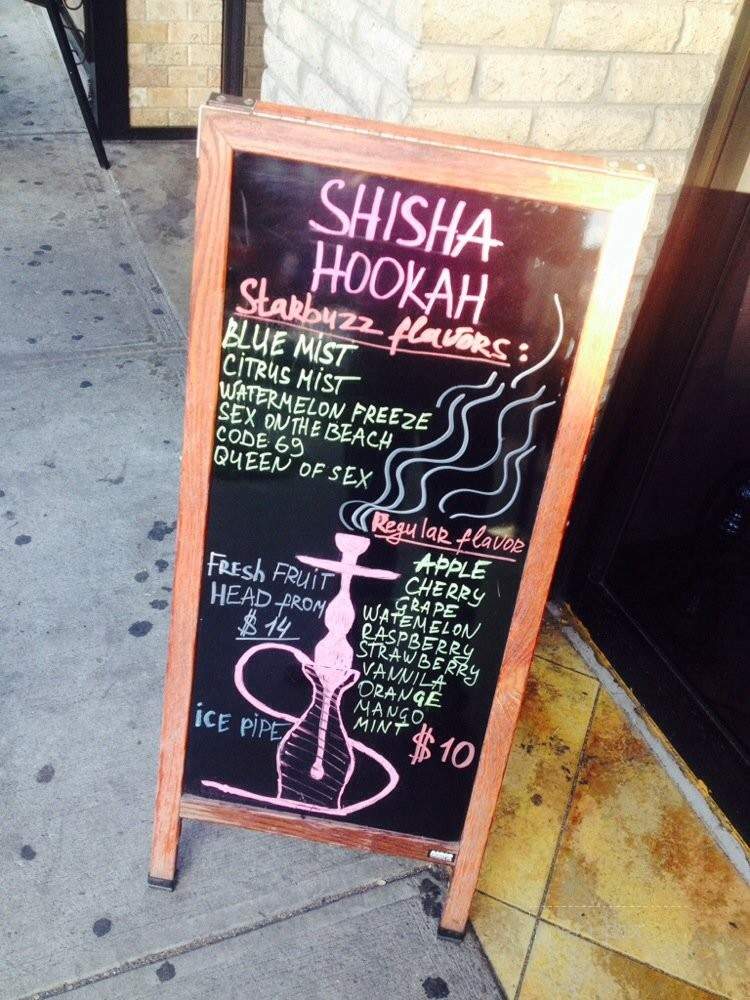 SHISHA
HOOKAH
Starbuzz flavors:
BLUE MIST
CITRUS MIST
WATERMELON FREEZE
SEX ON THE BEACH
CODE 69
QUEEN OF SEX
Regular flavor
APPLE
CHERRY
GRAPE
WATEMELON
RASPBERRY
STRAWBERRY
VANNILA
ORANGE
MANGO
MINT
$10
FRESH FRUIT
HEAD FROM
$14
ICE PIPE